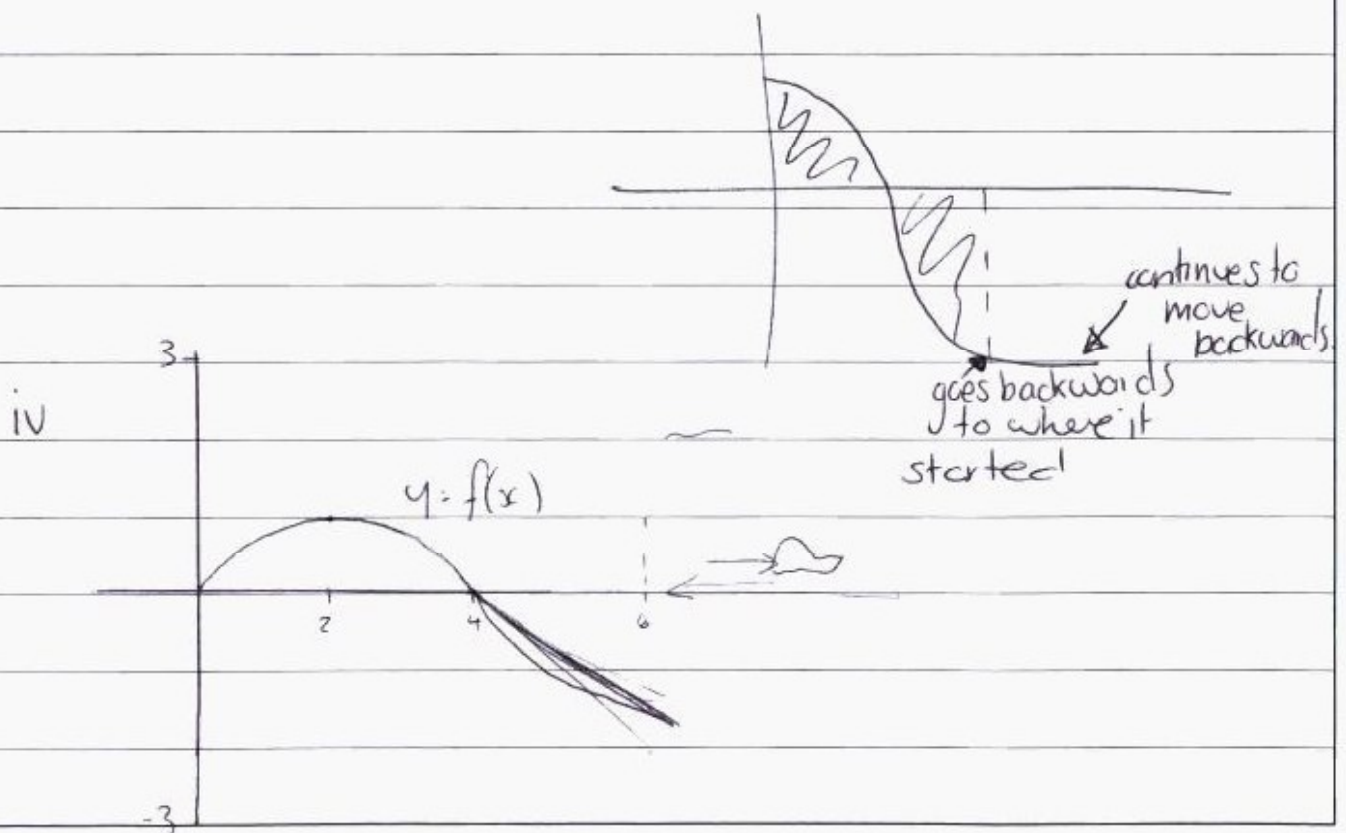 continues to
move
backwards
3
goes backwards
iv
to where it
started
y = f(x)
2
4
6
-3